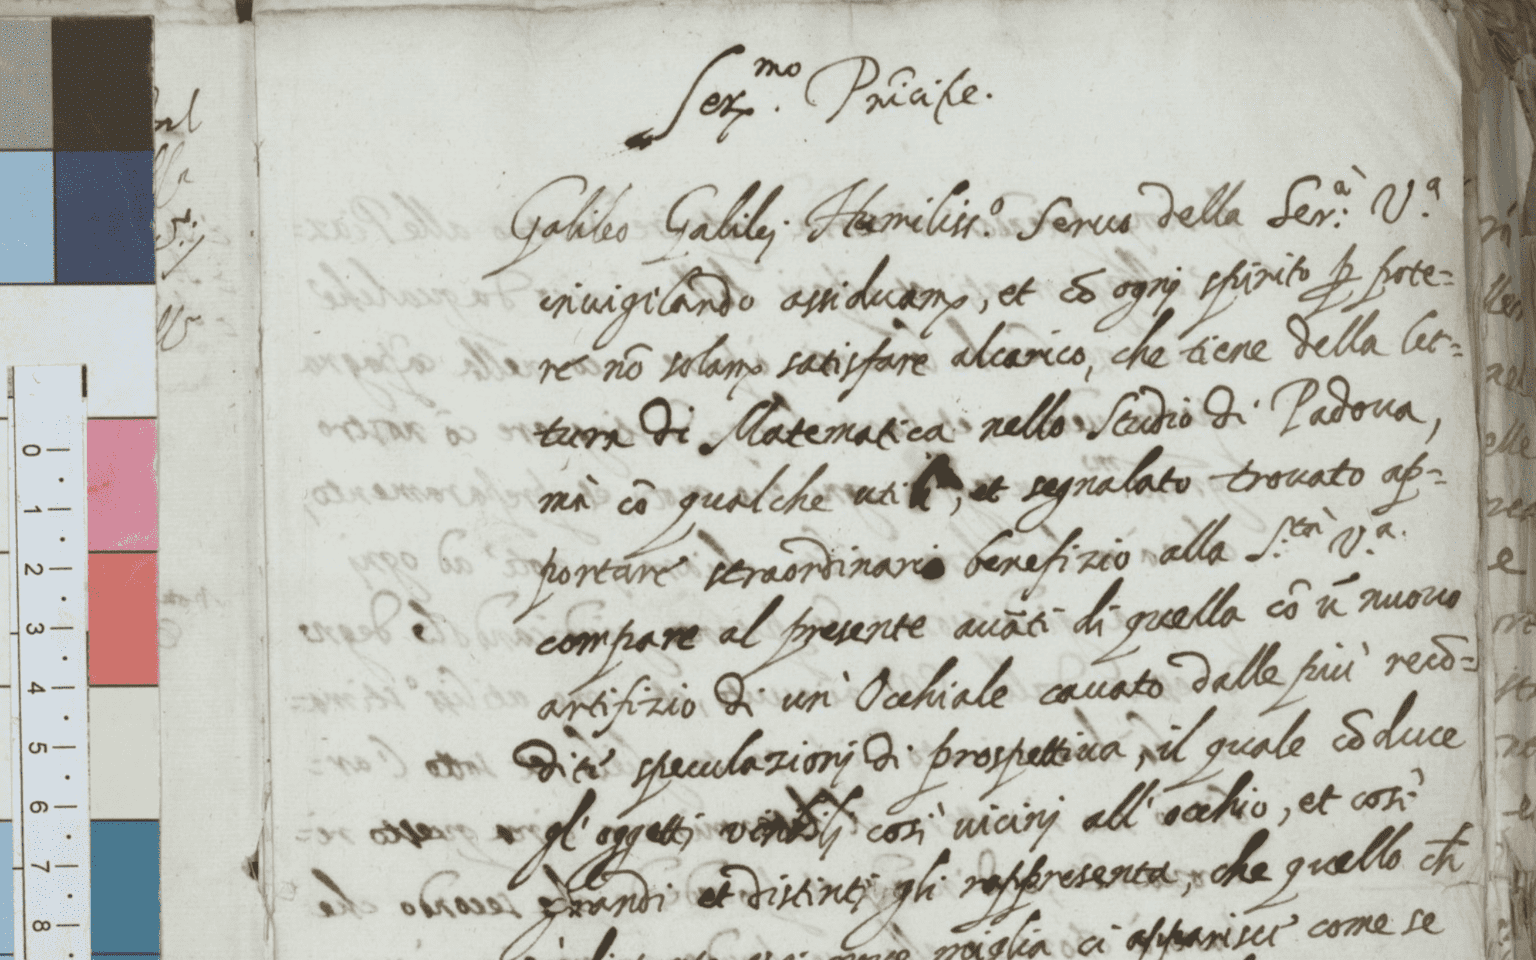 Ser.mo Prīcipe.
Galileo Galilej Humiliss.o Seruo della Ser.à V.a
inuigilando assiduam.e, et cō ognj spirito p̱ pote=
re nō solam.e satisfare alcarico, che tiene della let=
tura di Matematica nello Studio di Padoua,
mà cō qualche utile, et segnalato trouato ap=
portare straordinario benefizio alla S.tà V.a.
compare al presente auāti di quella cō ū nuouo
artifizio di un' Occhiale cauato dalle più recō=
dite speculazionj di prospettiua, il quale cōduce
gl' oggetti visibilj così uicinj all' occhio, et così
grandi et distintj gli rappresenta, che quello ch̄
miglia ci apparisce come se
0
1
2
3
4
5
6
7
8